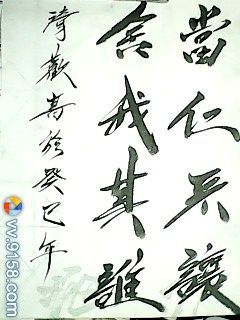 當仁不讓
舍我其誰
書於癸巳年
w.9158.com